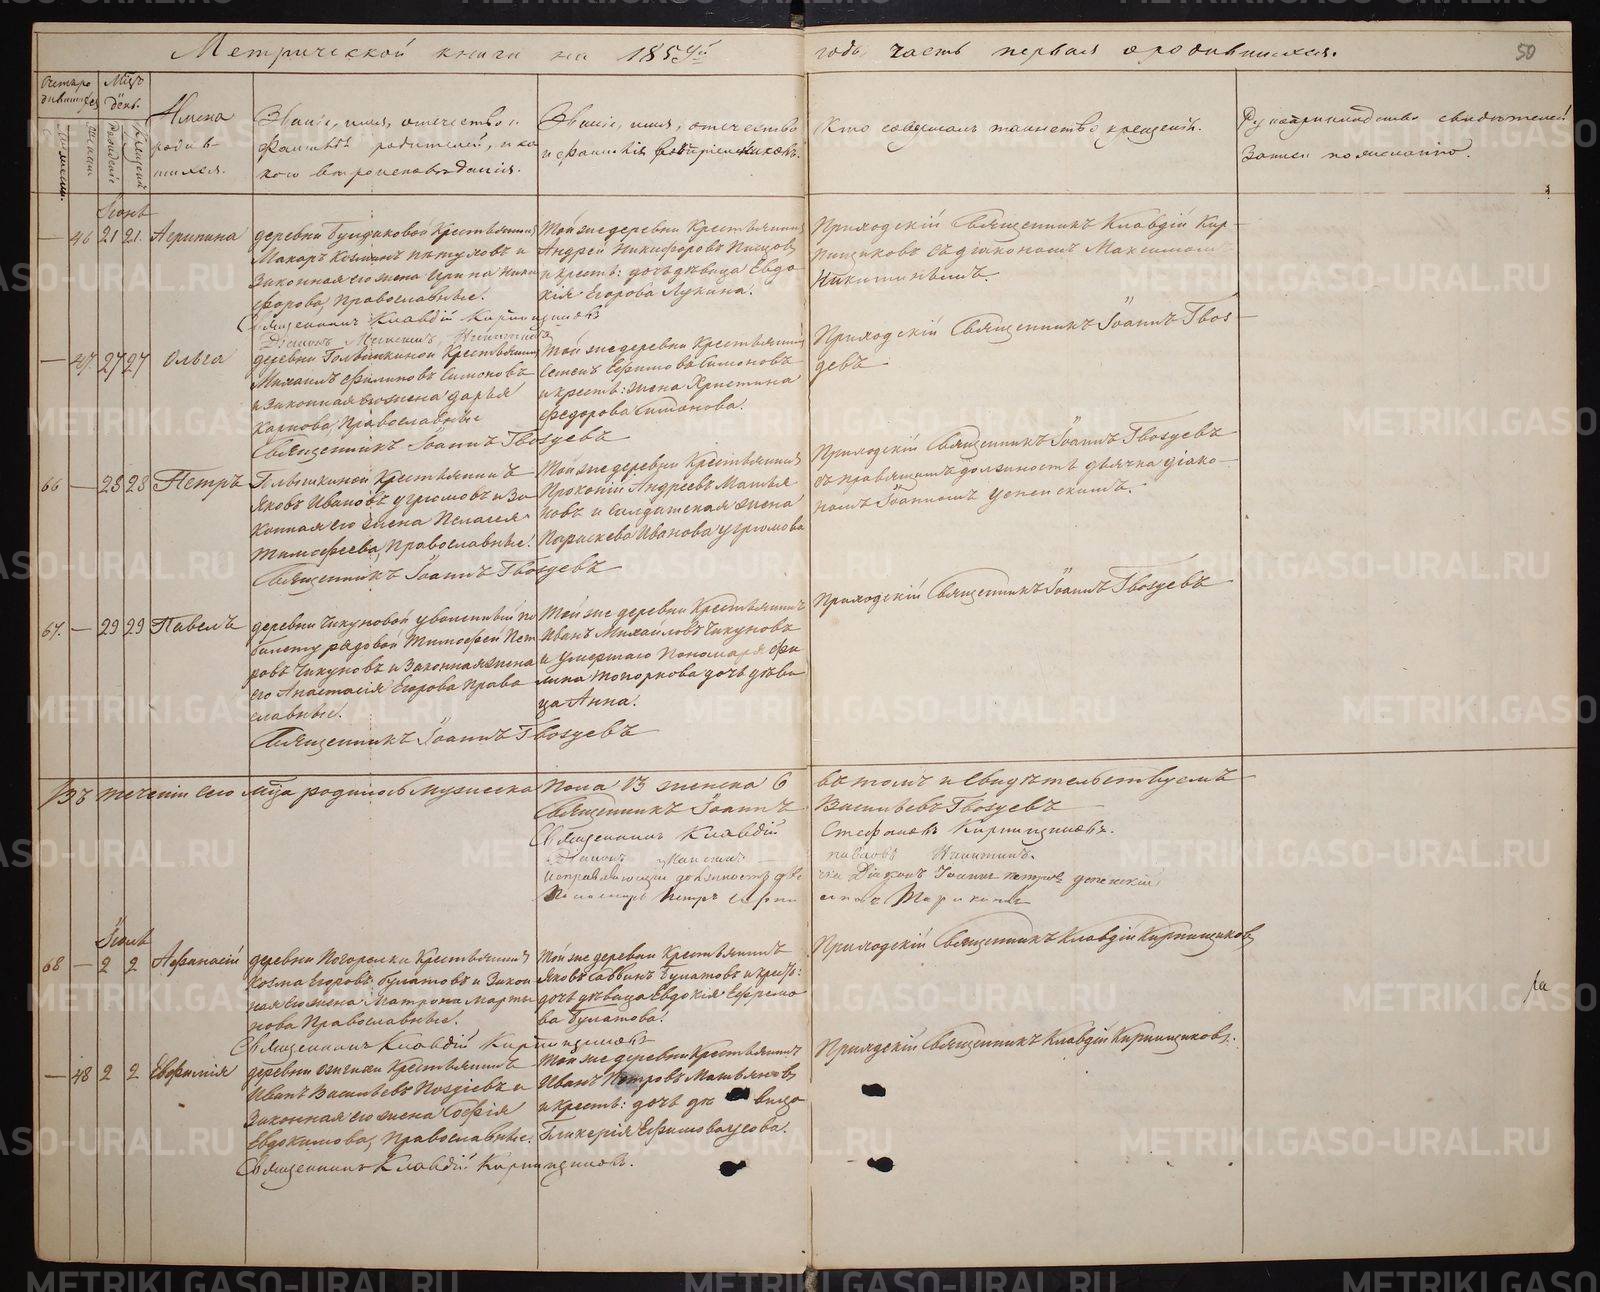 Метрической книги на 1859й годъ, часть первая о родившихся.
50
Счетъ ро
дившихся
Мцъ
День.
Имена
родив-
шихся.
Званіе, имя, отечество и
фамилія родителей, и ка
кого вѣроисповѣданія.
Званіе, имя, отечество
и фамилія воспріемниковъ.
Кто совершалъ таинство крещенія.
Рукоприкладство свидѣтелей
записи по желанію.
Іюнь
— 46 21 21 Агрипина
деревни Крестьянинъ
Макаръ Козминъ Пѣтуховъ и
Законная его жена Ирина Ники
форова, Православные.
Священникъ Клавдій Кирпищиковъ
Діаконъ Максимъ Никитинъ
Той же деревни Крестьянинъ
Андрей Никифоровъ
и крестъ: дочь дѣвица Евдо
кія Егорова Лукина.
Приходскій Священникъ Клавдій Кир-
пищиковъ съ діакономъ Максимомъ
Никитинымъ.
— 47. 27 27 Ольга
деревни Крестьянинъ
Михаилъ Филиповъ Симоновъ
и Законная его жена Дарья
Карпова, Православные
Священникъ Іоаннъ Гвоздевъ
Той же деревни Крестьянинъ
Семенъ Ефимовъ Симоновъ
и крестъ: жена Христина
Федорова Симонова.
Приходскій Священникъ Іоаннъ Гвоз-
девъ
66 — 28 28 Петръ
Крестьянинъ
Яковъ Ивановъ Угрюмовъ и За
конная его жена Пелагея
Тимофеева, Православные.
Священникъ Іоаннъ Гвоздевъ
Той же деревни Крестьянинъ
Прокопій Андреевъ Матвя
новъ и Солдатская жена
Параскева Иванова Угрюмова
Приходскій Священникъ Іоаннъ Гвоздевъ
съ правящимъ должность дьячка діако-
номъ Іоанномъ Успенскимъ.
67. — 29 29 Павелъ
деревни Чикуновой уволенный по
билету рядовой Тимофей Пет
ровъ Чикуновъ и Законная жена
его Анастасія Егорова Право
славные.
Священникъ Іоаннъ Гвоздевъ
Той же деревни Крестьянинъ
Иванъ Михайловъ Чикуновъ
и умершаго Пономаря Фи
липа Топоркова дочь дѣви
ца Анна.
Приходскій Священникъ Іоаннъ Гвоздевъ
Въ теченіи сего мца родилось Мужеска Пола 13 женска 6 въ томъ и свидѣтельствуемъ
Священникъ Іоаннъ Васильевъ Гвоздевъ
Священникъ Клавдій Стефановъ Кирпищиковъ.
Діаконъ Максимъ Павловъ Никитинъ.
Исправляющій должность дья чка Діаконъ Іоаннъ Петровъ Успенскій
Пономарь Петръ
Іюль
68 — 2 2 Афанасій
деревни Погорелки Крестьянинъ
Козма Егоровъ Булатовъ и Закон
ная его жена Матрона Марты
нова Православные.
Священникъ Клавдій Кирпищиковъ
Той же деревни Крестьянинъ
Яковъ Саввинъ Булатовъ и крестъ:
дочь дѣвица Евдокія Ефремо
ва Булатова.
Приходскій Священникъ Клавдій Кирпищиковъ
— 48 2 2 Евфимія
деревни Крестьянинъ
Иванъ Васильевъ Поздѣевъ и
Законная его жена Софія
Евдокимова, Православные.
Священникъ Клавдій Кирпищиковъ.
Той же деревни Крестьянинъ
Иванъ Петровъ Матвяновъ
и крестъ: дочь дѣ вица
Гликерія Ефимова Усова.
Приходскій Священникъ Клавдій Кирпищиковъ.